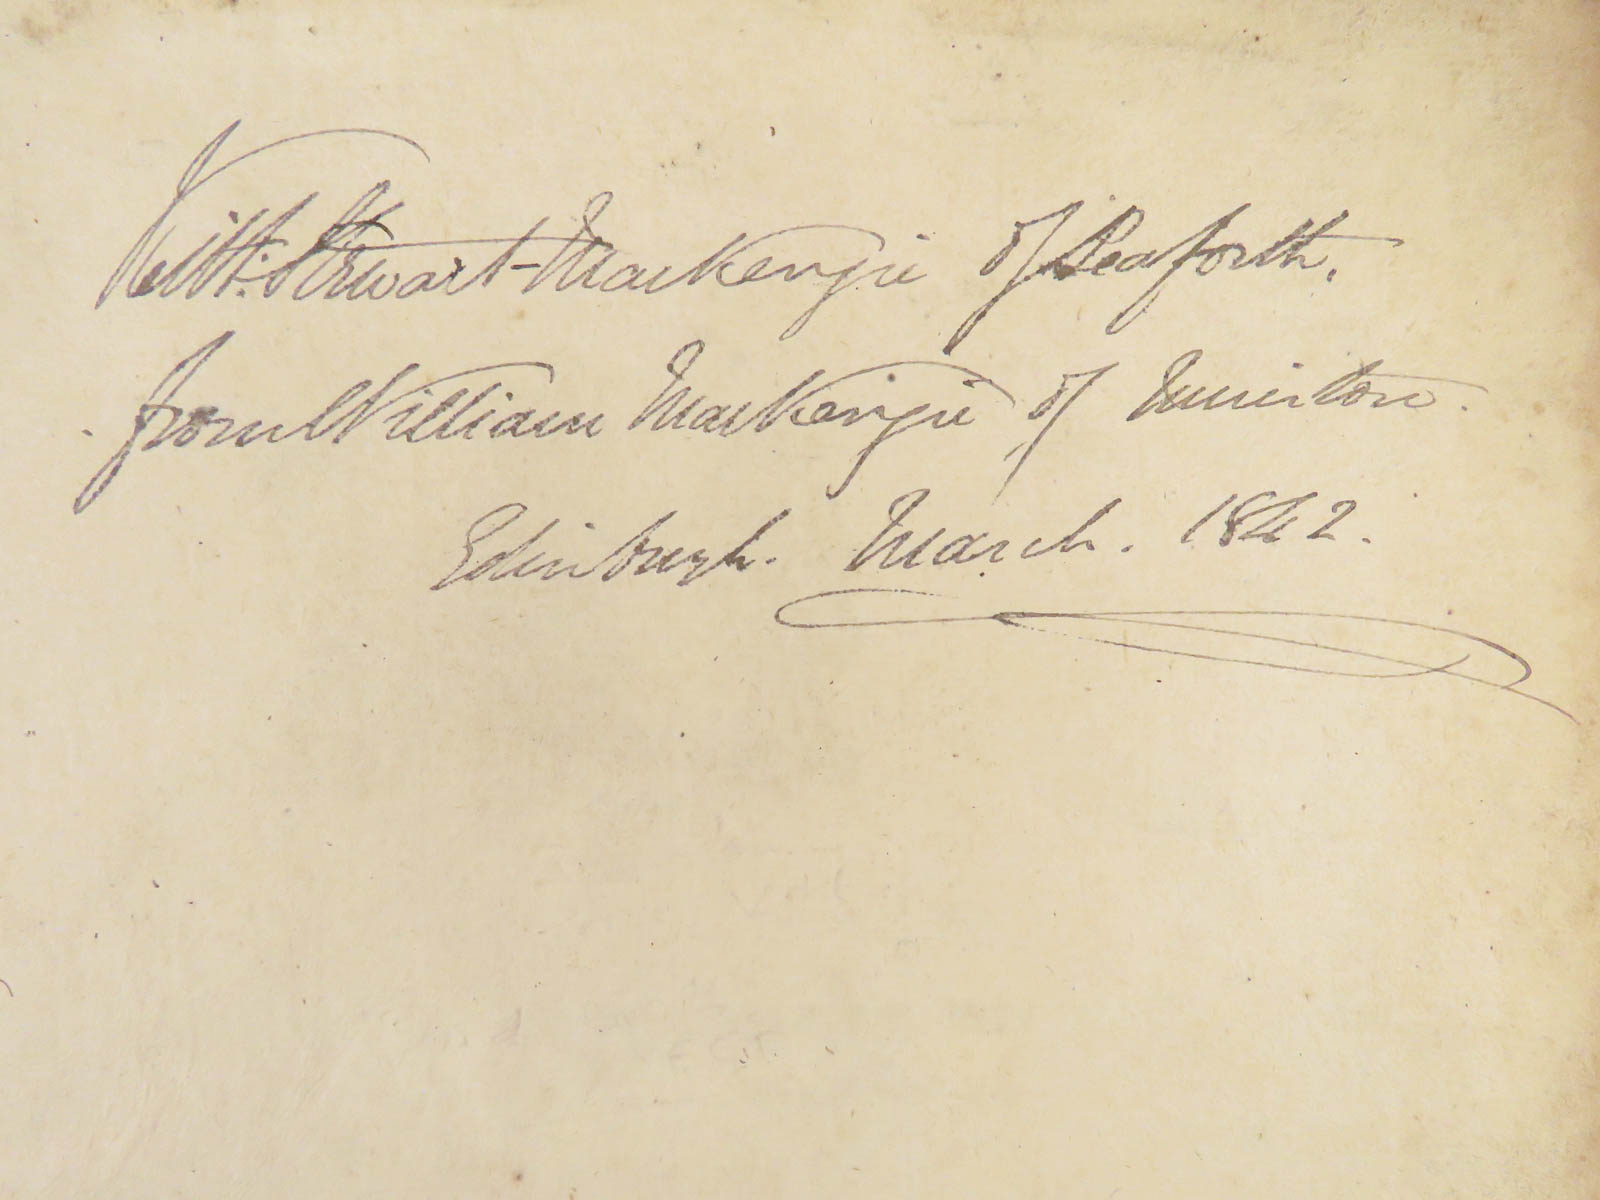 Keith Stewart-MacKenzie of Seaforth.
from William MacKenzie of Muirton.
Edinburgh. March. 1842.